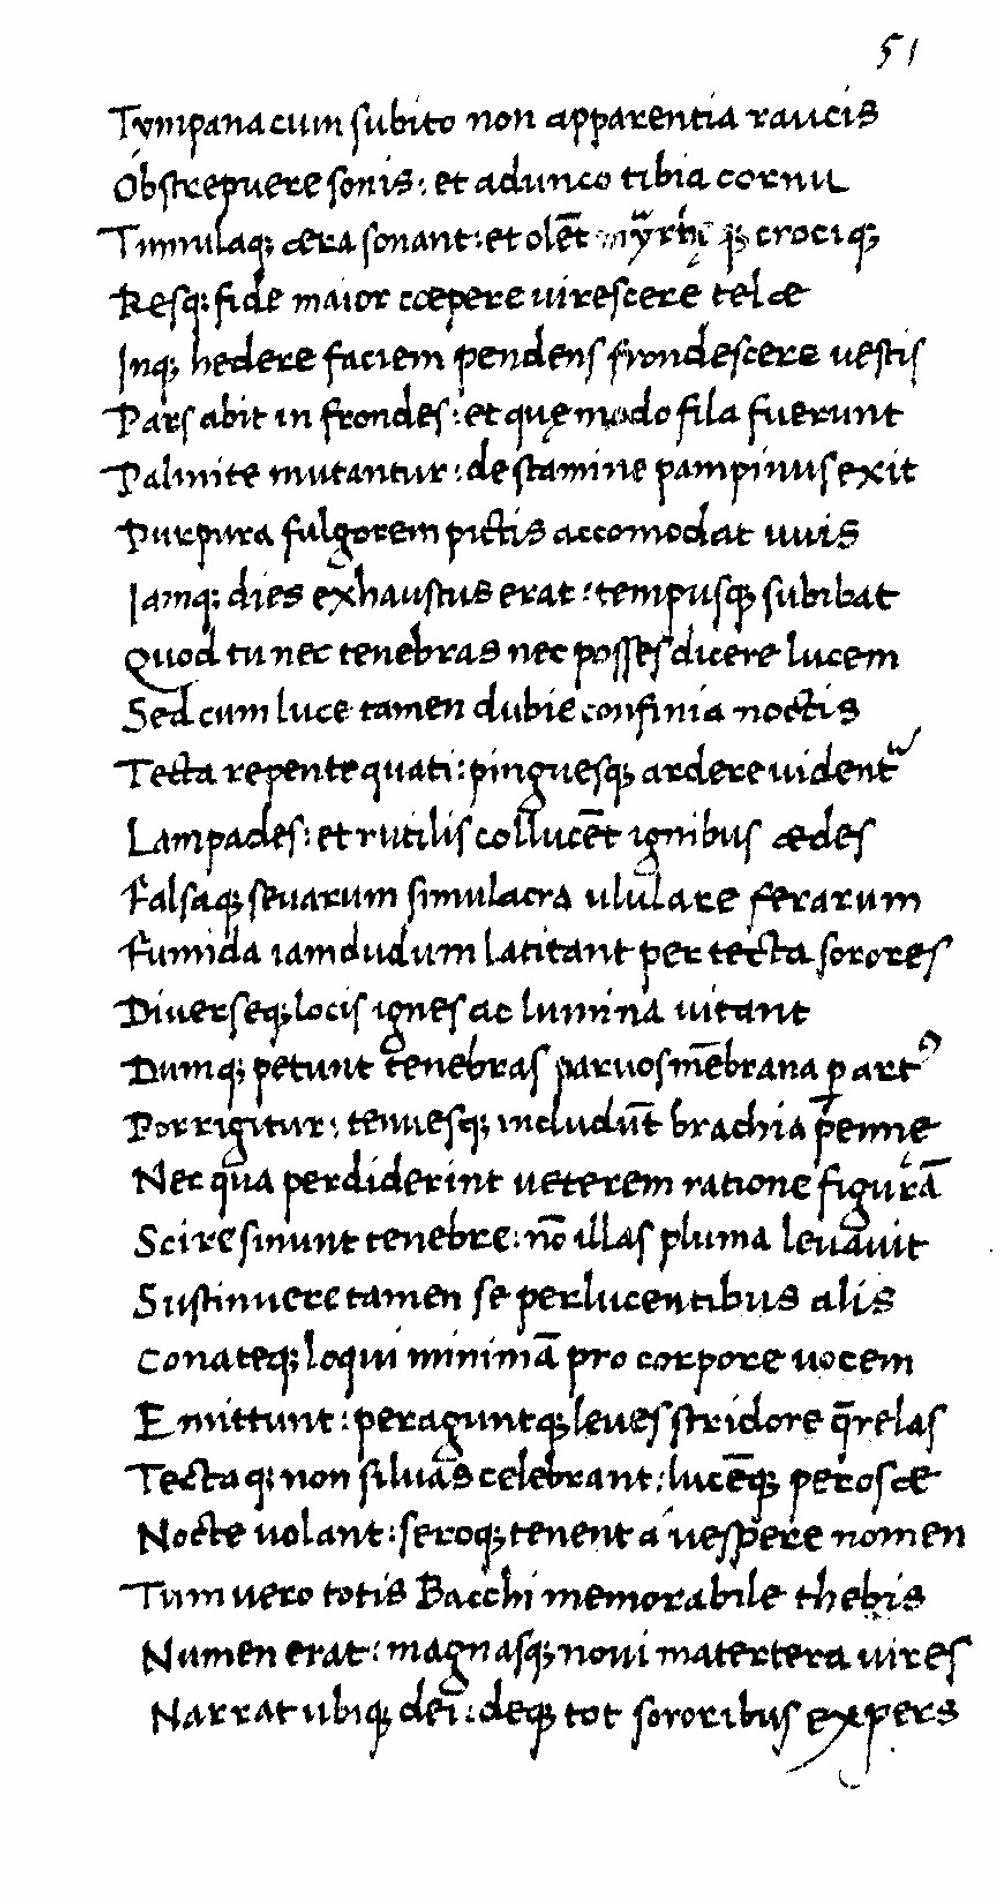 51
Tympana cum subito non apparentia raucis
Obstrepuere sonis: et adunco tibia cornu
Tinnulaq; æra sonant: et olēt myrrhę q; crociq;
Resq; fide maior cœpere uirescere telæ
Inq; hedere faciem pendens frondescere uestis
Pars abit in frondes: et quę modo fila fuerunt
Palmite mutantur: de stamine pampinus exit
Purpura fulgorem pictis accomodat uuis
Iamq; dies exhaustus erat: tempusq; subibat
Quod tu nec tenebras nec posses dicere lucem
Sed cum luce tamen dubie confinia noctis
Tecta repente quati: pinguesq; ardere uident᷑
Lampades: et rutilis collucēt ignibus ædes
Falsaq; seuarum simulacra ululare ferarum
Fumida iamdudum latitant per tecta sorores
Diverseq; locis ignes ac lumina uitant
Dumq; petunt tenebras paruos mēbrana ꝑ artꝰ
Porrigitur: tenuesq; includūt brachia pennę
Nec qua perdiderint ueterem ratione figurā
Scire sinunt tenebre: nō illas pluma leuauit
Sustinuere tamen se perlucentibus alis
Conateq; loqui minimā pro corpore uocem
Emittunt: peraguntq; leues stridore q̄relas
Tectaq; non siluas celebrant: lucēq; perosæ
Nocte uolant: seroq; tenent á uespere nomen
Tum vero totis Bacchi memorabile thebis
Numen erat: magnasq; noui matertera uires
Narrat ubiq; dei: deq; tot sororibus expers